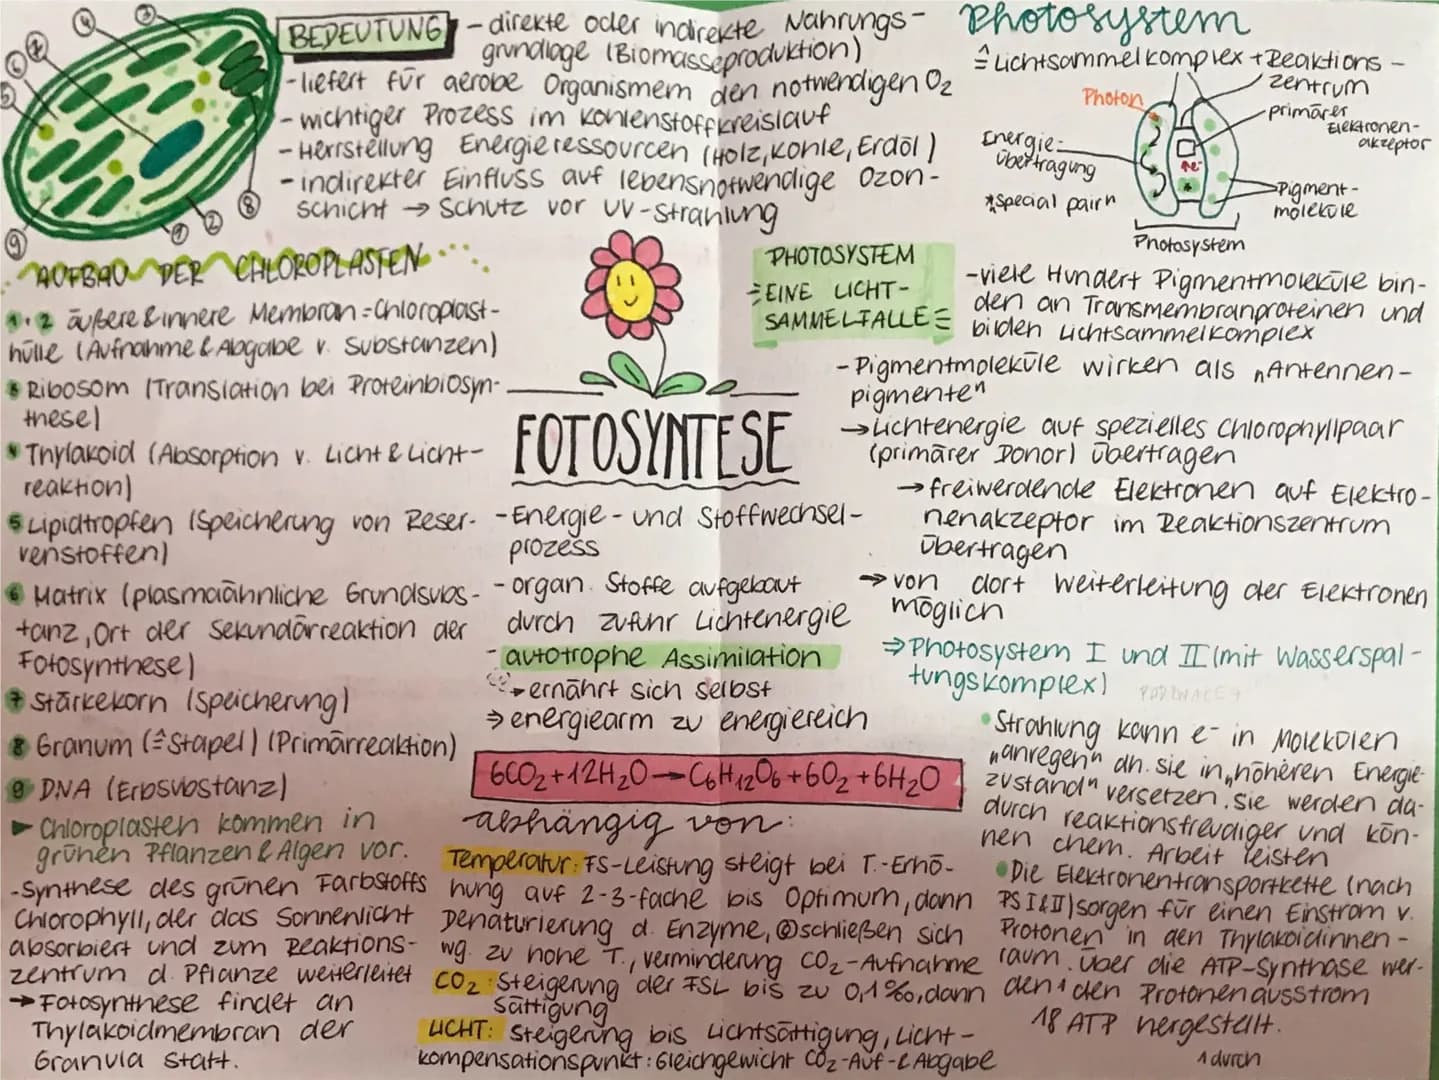 BEDEUTUNG
- direkte oder indirekte Nahrungs-
grundlage (Biomasseproduktion)
- liefert für aerobe Organismem den notwendigen O₂
- wichtiger Prozess im Kohlenstoffkreislauf
- Herrstellung Energieressourcen (Holz, Kohle, Erdöl)
- indirekter Einfluss auf lebensnotwendige Ozon-
schicht → Schutz vor UV-Strahlung
3
4
6
7
5
9
1
2
8
AUFBAU DER CHLOROPLASTEN
1+2 äußere & innere Membran = Chloroplast-
hülle (Aufnahme & Abgabe v. Substanzen)
3 Ribosom (Translation bei Proteinbiosyn-
these)
4 Thylakoid (Absorption v. Licht & Licht-
reaktion)
5 Lipidtropfen (Speicherung von Reser-
venstoffen)
6 Matrix (plasmaähnliche Grundsubs-
tanz, Ort der Sekundärreaktion der
Fotosynthese)
7 Stärkekorn (Speicherung)
8 Granum (≙Stapel) (Primärreaktion)
9 DNA (Erbsubstanz)
► Chloroplasten kommen in
grünen Pflanzen & Algen vor.
- Synthese des grünen Farbstoffs
Chlorophyll, der das Sonnenlicht
absorbiert und zum Reaktions-
zentrum d. Pflanze weiterleitet
→ Fotosynthese findet an
Thylakoidmembran der
Granula statt.
FOTOSYNTESE
- Energie- und Stoffwechsel-
prozess
- organ. Stoffe aufgebaut
durch zufuhr Lichtenergie
- autotrophe Assimilation
→ ernährt sich selbst
⇒ energiearm zu energiereich
6CO₂ + 12H₂O → C₆H₁₂O₆ + 6O₂ + 6H₂O
abhängig von:
Temperatur: FS-Leistung steigt bei T.-Erhö-
hung auf 2-3-fache bis Optimum, dann
Denaturierung d. Enzyme, schließen sich
wg. zu hohe T., verminderung CO₂-Aufnahme
CO₂: Steigerung der FSL bis zu 0,1‰, dann
Sättigung
LICHT: Steigerung bis Lichtsättigung, Licht-
kompensationspunkt: Gleichgewicht CO₂-Auf-&Abgabe
Photosystem
≙ Lichtsammelkomplex + Reaktions-
zentrum
Photon
primärer
Elektronen-
akzeptor
Energie-
übertragung
e⁻
*
*„special pair"
Pigment-
moleküle
Photosystem
PHOTOSYSTEM
= EINE LICHT-
SAMMELFALLE =
- viele Hundert Pigmentmoleküle bin-
den an Transmembranproteinen und
bilden Lichtsammelkomplex
- Pigmentmoleküle wirken als „Antennen-
pigmente"
→ Lichtenergie auf spezielles Chlorophyllpaar
(primärer Donor) übertragen
→ freiwerdende Elektronen auf Elektro-
nenakzeptor im Reaktionszentrum
übertragen
→ von dort Weiterleitung der Elektronen
möglich
⇒ Photosystem I und II (mit Wasserspal-
tungskomplex)
• Strahlung kann e⁻ in Molekülen
„anregen" dh. sie in „höheren Energie-
zustand" versetzen. Sie werden da-
durch reaktionsfreudiger und kön-
nen chem. Arbeit leisten
• Die Elektronentransportkette (nach
PS I & II) sorgen für einen Einstrom v.
Protonen in den Thylakoidinnen-
raum. Über die ATP-Synthase wer-
den ¹ den Protonenausstrom
18 ATP hergestellt.
1 durch